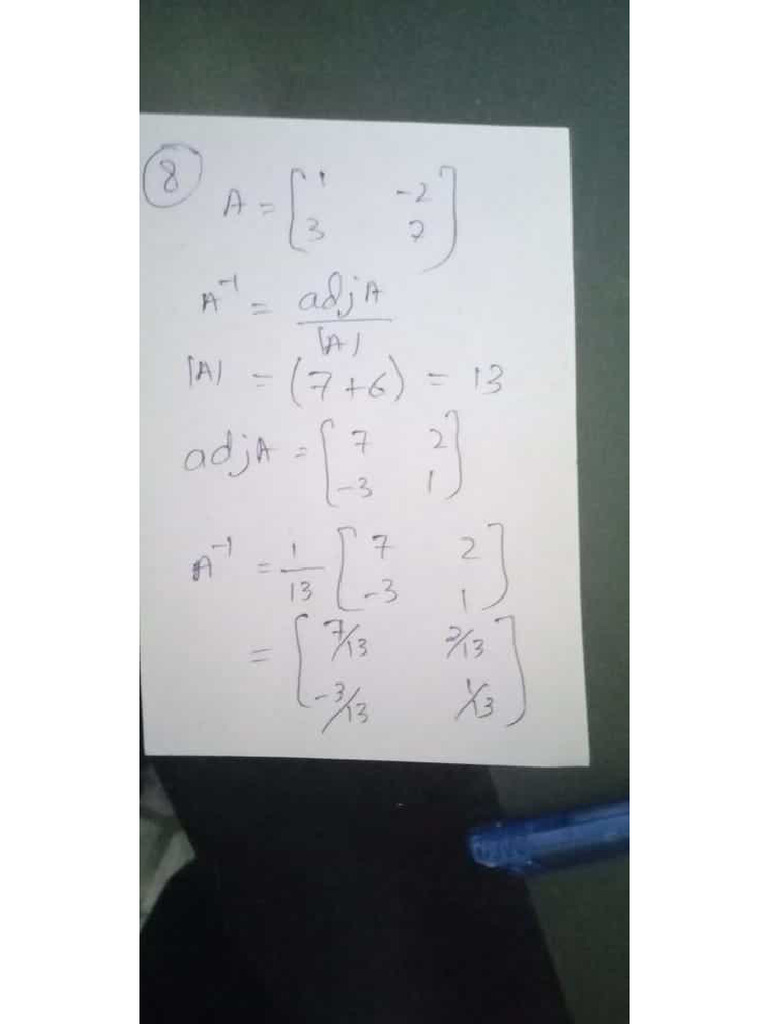 8
A = [ 1 -2
3 7 ]
A⁻¹ = adjA / |A|
|A| = (7+6) = 13
adjA = [ 7 2
-3 1 ]
A⁻¹ = 1/13 [ 7 2
-3 1 ]
= [ 7/13 2/13
-3/13 1/13 ]